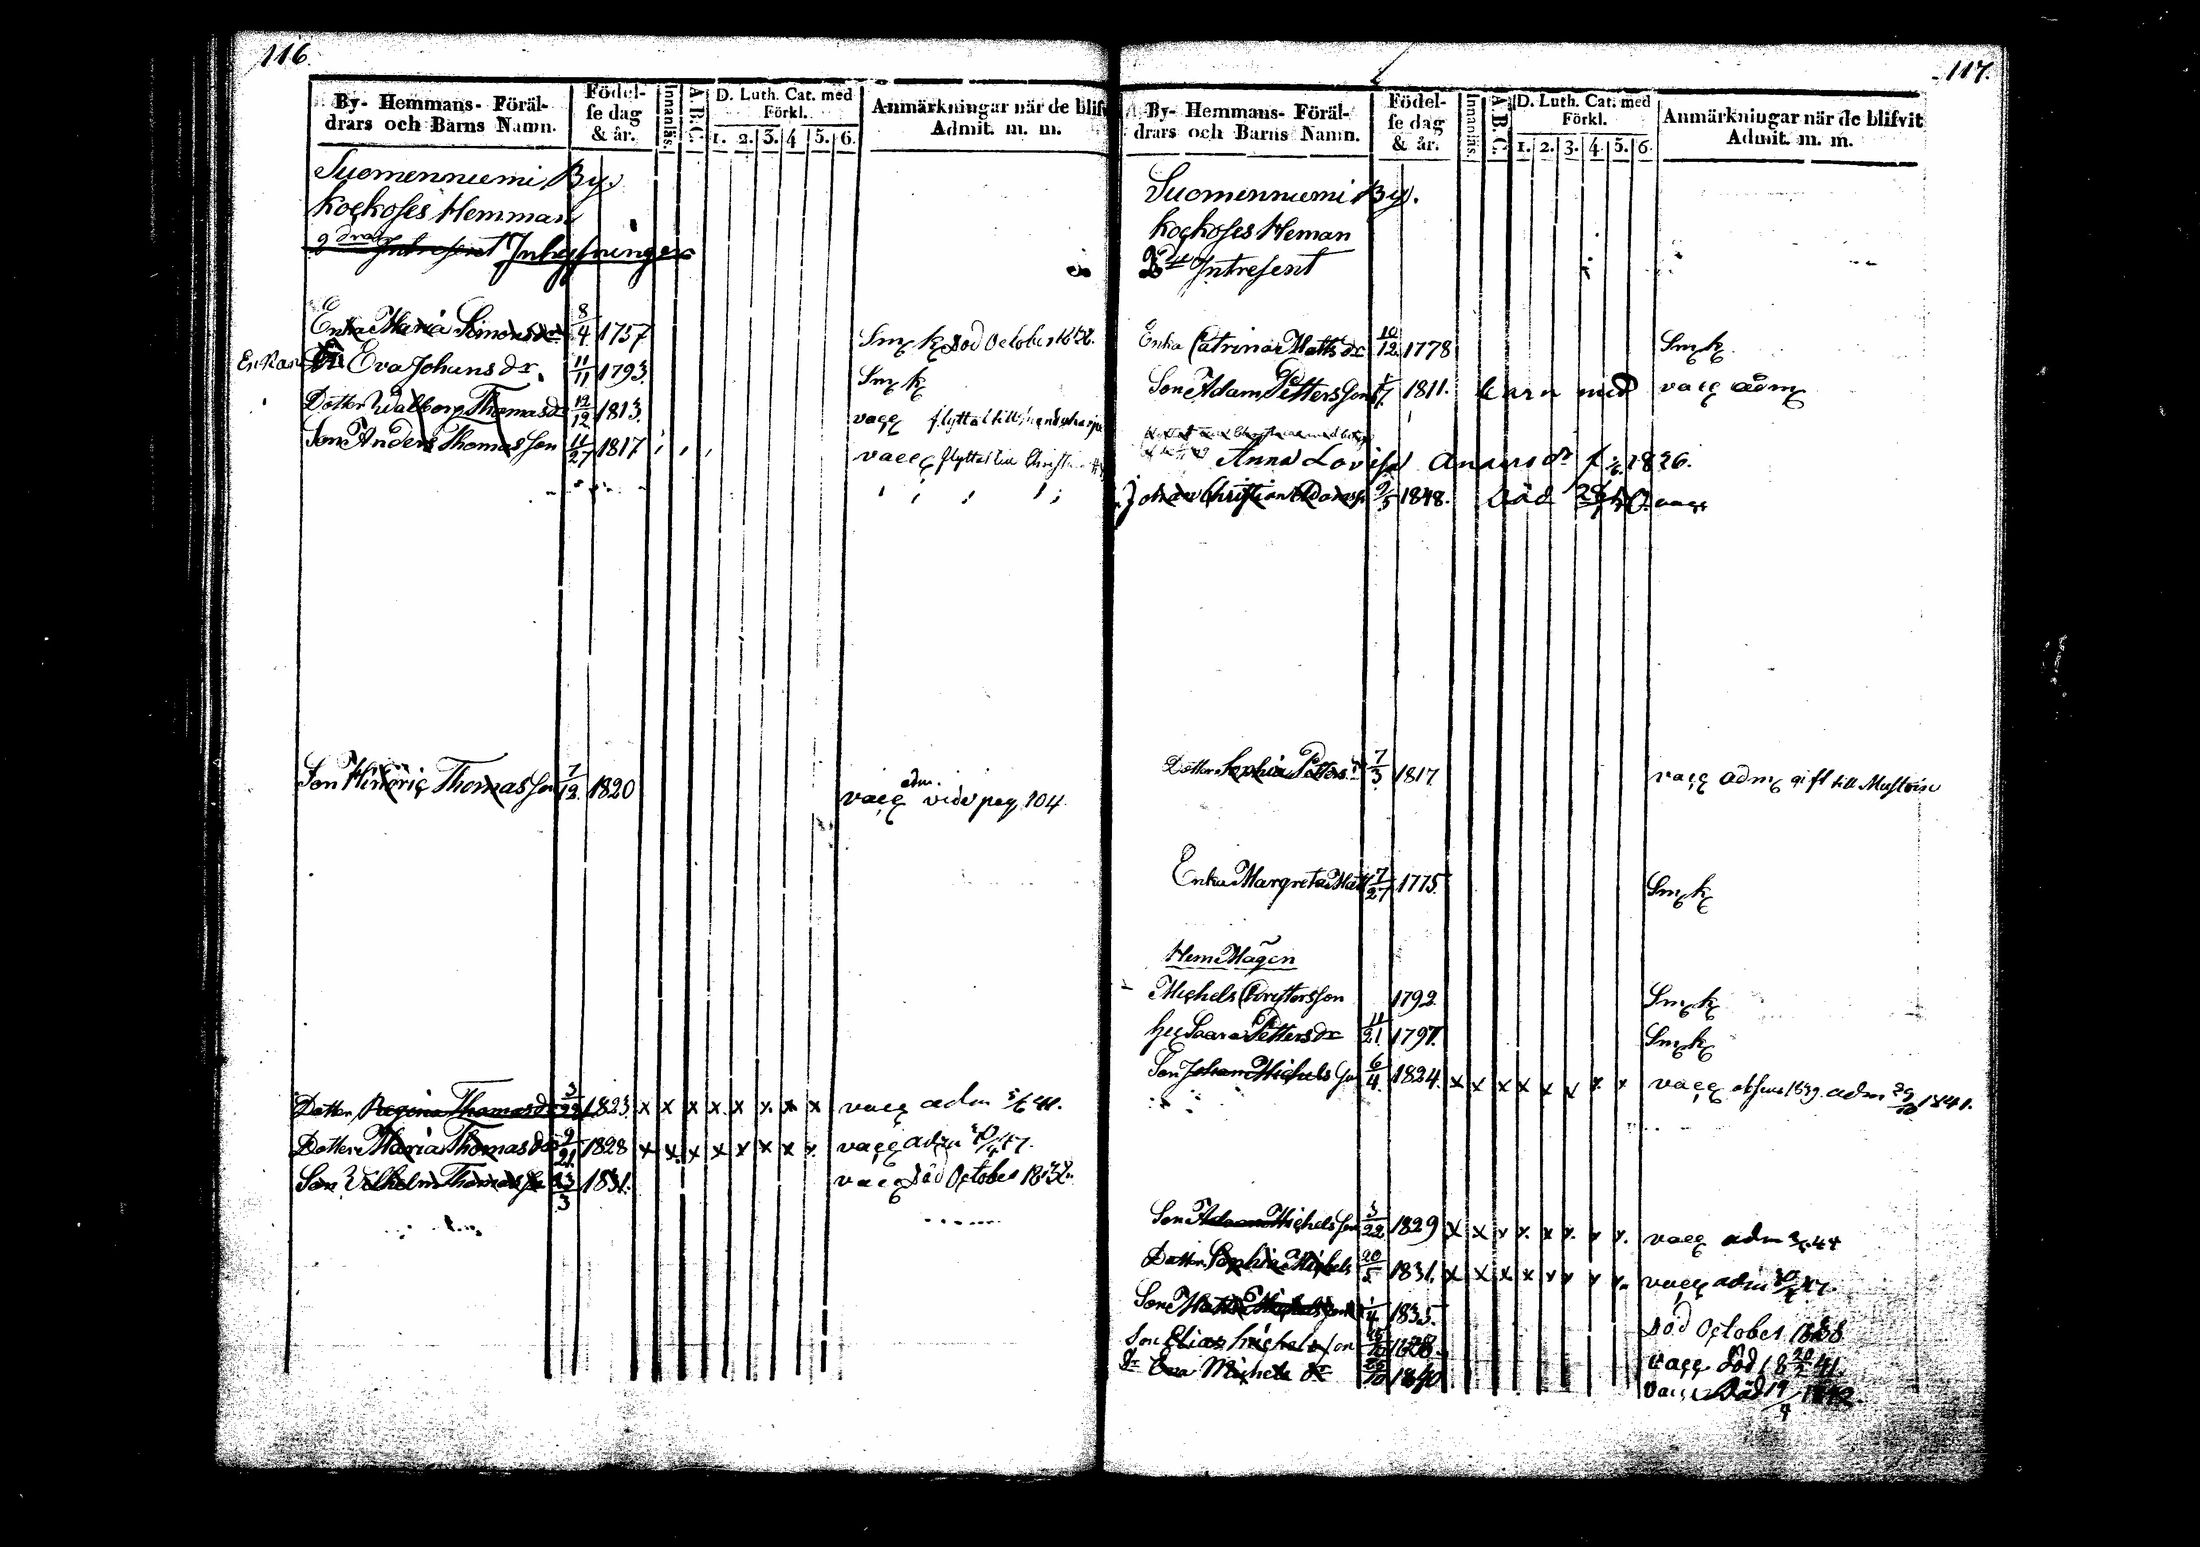 116.
By- Hemmans- Föräl-
drars och Barns Namn.
Födel-
se dag
& år.
Innanläs.
A. B. C.
D. Luth. Cat. med
Förkl.
1. 2. 3. 4 5. 6.
Anmärkningar när de blifv
Admit. m. m.
Suomenniemi By.
Kockoses Hemman
2dra Intresent Inhysningar
Enka Maria Simonsdr 8/4 1757 Smk död October 1838.
Enkan Eva Johansdr. 11/11 1793. Smk
Dotter Walborg Thomasdr 12/12 1813. vacc flyttat till
Son Anders Thomasson 11/27 1817 vacc flyttat till
Son Hinric Thomasson 7/12 1820 vacc adm. vide pag. 104
Dotter Regina Thomasdr 3/22 1823 x x x x x x x x vacc adm
Dotter Maria Thomasdr 9/21 1828 x x x x x x x x vacc adm
Son Vilhelm Thomasson 23/3 1831. vacc död October
117.
By- Hemmans- Föräl-
drars och Barns Namn.
Födel-
se dag
& år.
Innanläs.
A. B. C.
D. Luth. Cat. med
Förkl.
1. 2. 3. 4. 5. 6.
Anmärkningar när de blifvit
Admit. m. m.
Suomenniemi By.
Kockoses Heman
Intresent
Enka Catrina Mattsdr 10/12 1778 Smk
Son Adam Pettersson 1811. barn med vacc adm
Anna Lovisa Andersdr 1826.
Johan Christian Adamss 9/5 1848. död vacc
Dotter Sophia Petters 7/3 1817 vacc adm gift till
Enka Margreta Matts 7/27 1775. Smk
Hem Mågen
Michel Christersson 1792 Smk
hu Saara Pettersdr 11/21 1797. Smk
Son Johan Michelsson 6/4 1824. x x x x x x x x vacc 1839. adm 1841.
Son Adam Michelsson 3/22 1829 x x x x x x x x vacc adm 44
Dotter Sophia Michels 20/5 1831. x x x x x x x x vacc adm 47.
Son 1835. död October 1838
Son Elias Michelsson vacc död 41.
Dr Eva Michelsdr 1840 vacc död 19/4 1842.